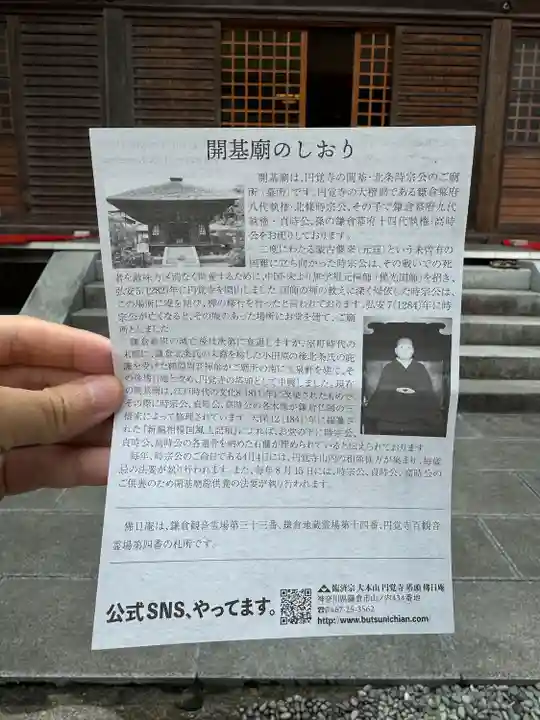 開基廟のしおり
開基廟は、円覚寺の開基・北条時宗公のご廟
所(墓所)です。円覚寺の大檀那である鎌倉幕府
八代執権・北條時宗公、その子で鎌倉幕府九代
執権・貞時公、孫の鎌倉幕府十四代執権・高時
公をお祀りしております。
二度にわたる蒙古襲来(元寇)という未曾有の
国難に立ち向かった時宗公は、その戦いでの死
者を敵味方の区別なく供養するために、中国・宋より無学祖元禅師(佛光国師)を招き、
弘安5(1282)年に円覚寺を開山しました。国師の禅の教えに深く帰依した時宗公は、
この場所に庵を結び、禅の修行を行ったと言われております。弘安7(1284)年に時
宗公が亡くなると、その庵のあった場所にお堂を建て、ご廟
所としました。
鎌倉幕府の滅亡後は次第に衰退しますが、室町時代の
その際に時宗公、貞時公、高時公の各木像が鎌倉仏師の三
橋家によって修理されています。天保12(1841)年に編纂さ
れた『新編相模国風土記稿』によれば、お堂の下に時宗公、
貞時公、高時公の各遺骨を納めた石櫃が埋められていると伝えられております。
毎年、時宗公のご命日である4月4日には、円覚寺山内の和尚様方が集まり、毎歳
忌の法要が執り行われます。また、毎年8月15日には、時宗公、貞時公、高時公の
ご供養のため開基廟施供養の法要が執り行われます。
佛日庵は、鎌倉観音霊場第三十三番、鎌倉地蔵霊場第十四番、円覚寺百観音
霊場第四番の札所です。
公式SNS、やってます。
臨済宗 大本山 円覚寺 塔頭 佛日庵
神奈川県鎌倉市山ノ内434番地
☎0467-25-3562
http://www.butsunichian.com